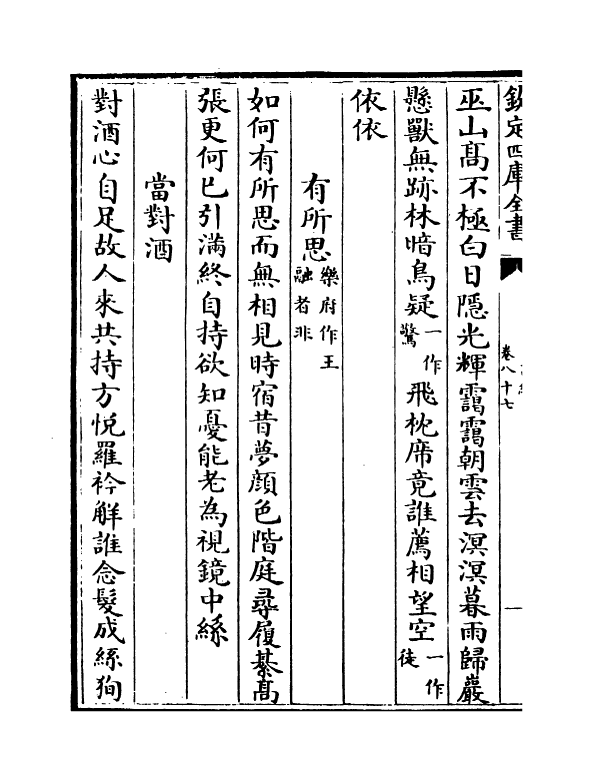 欽定四庫全書
卷八十七
一
巫山髙不極白日隠光輝靄靄朝雲去溟溟暮雨歸巖
懸獸無跡林暗鳥疑一作驚飛枕席竟誰薦相望空一作徒
依依
有所思樂府作王融者非
如何有所思而無相見時宿昔夢顔色階庭尋履綦髙
張更何已引滿終自持欲知憂能老為視鏡中絲
當對酒
對酒心自足故人來共持方悅羅衿解誰念髮成絲狥